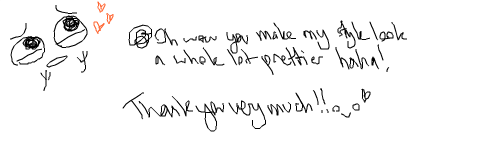 Oh wow you make my style look
a whole lot prettier haha!
Thank you very much!!